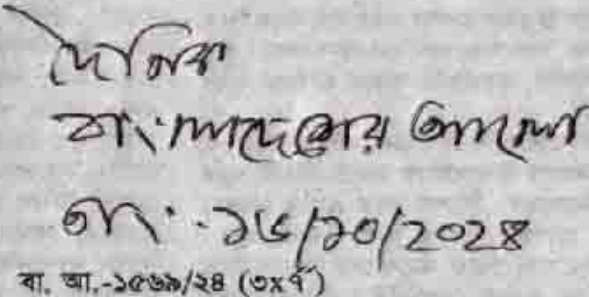 দৈনিক
বাংলাদেশের আলো
তাং-১৬/১০/২০২৪
বা. আ.-১৫৬৯/২৪ (৩x৭")